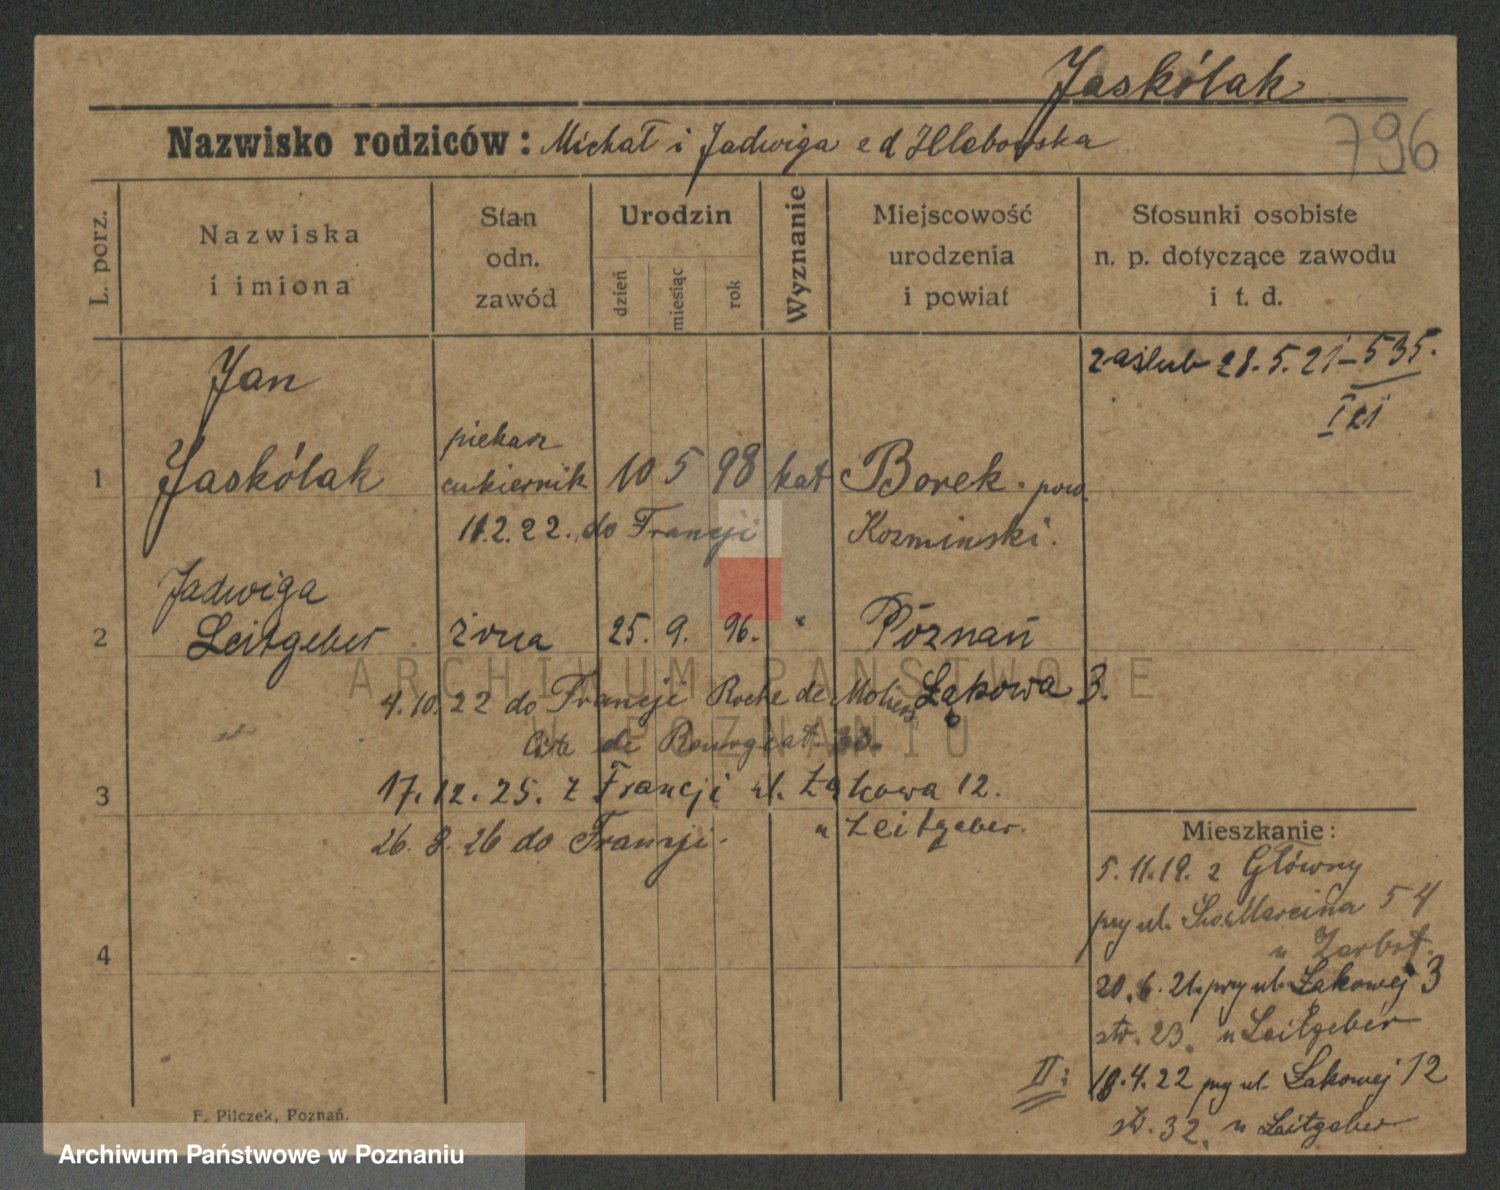 Jaskólak
Nazwisko rodziców: Michał i Jadwiga z d
796
L. porz.
Nazwiska
i imiona
Stan
odn.
zawód
Urodzin
dzień
miesiąc
rok
Wyznanie
Miejscowość
urodzenia
i powiat
Stosunki osobiste
n. p. dotyczące zawodu
i t. d.
zaślub 28. 5. 21 – 535.
1
Jan
Jaskólak
piekarz
cukiernik
10 5 98
kat
Borek. pow.
Kozminski.
11.2.22. do Francji
2
Jadwiga
Leitgeber
żona
25. 9. 96.
"
Poznań
4.10.22 do Francji Roche de Łąkowa 3.
3
17.12.25. z Francji ul. Łąkowa 12.
u Leitgeber.
26. 8. 26 do Francji.
4
Mieszkanie:
5.11.19. z Główny
przy ul. Św. Marcina 54
u
20.6.21. przy ul. Łąkowej 3
str. 23. u Leitgeber
II:
18.4.22 przy ul. Łąkowej 12
st. 32. u Leitgeber
F. Pilczek, Poznań.
ARCHIWUM PAŃSTWOWE
W POZNANIU
Archiwum Państwowe w Poznaniu